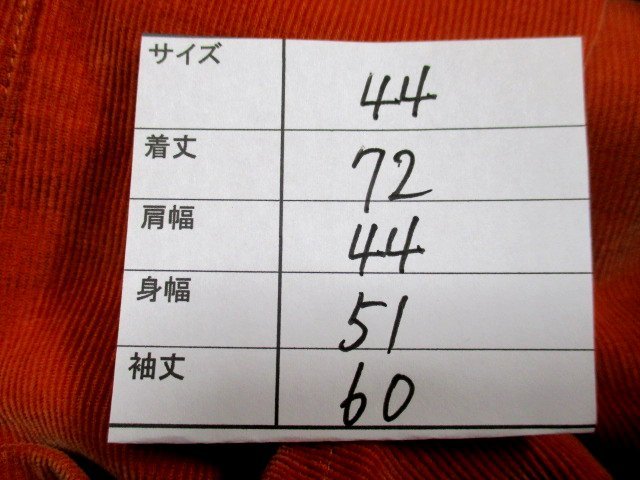 サイズ 44
着丈 72
肩幅 44
身幅 51
袖丈 60